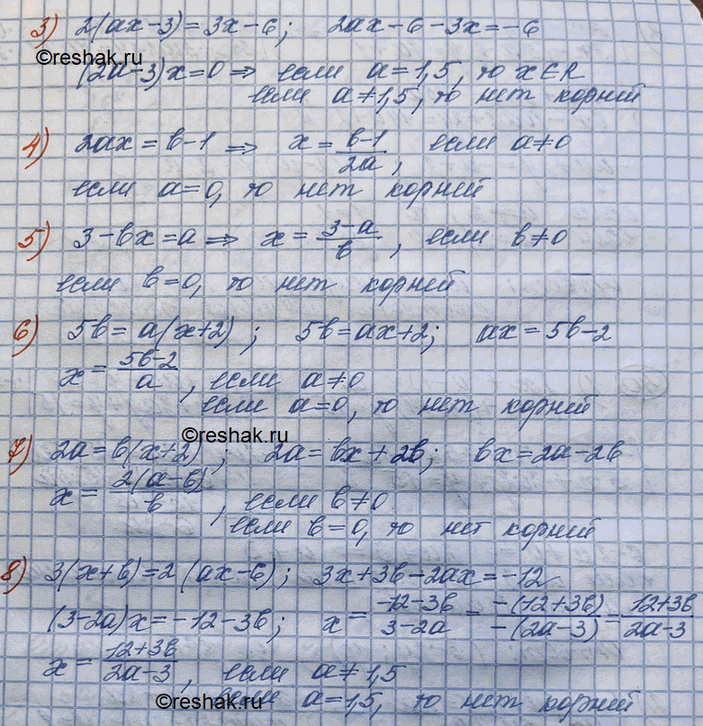 3) 2(ax-3)=3x-6; 2ax-6-3x=-6
©reshak.ru
(2a-3)x=0 ⇒ если a=1,5, то x∈R
если a≠1,5, то нет корней
4) 2ax=b-1 ⇒ x=(b-1)/(2a), если a≠0
если a=0, то нет корней
5) 3-bx=a ⇒ x=(3-a)/b, если b≠0
если b=0, то нет корней
6) 5b=a(x+2); 5b=ax+2; ax=5b-2
x=(5b-2)/a, если a≠0
если a=0, то нет корней
©reshak.ru
7) 2a=b(x+2); 2a=bx+2b; bx=2a-2b
x=2(a-b)/b, если b≠0
если b=0, то нет корней
8) 3(x+b)=2(ax-6); 3x+3b-2ax=-12
(3-2a)x=-12-3b; x=(-12-3b)/(3-2a)=(-(12+3b))/(-(2a-3))=(12+3b)/(2a-3)
x=(12+3b)/(2a-3), если a≠1,5
©reshak.ru
если a=1,5, то нет корней